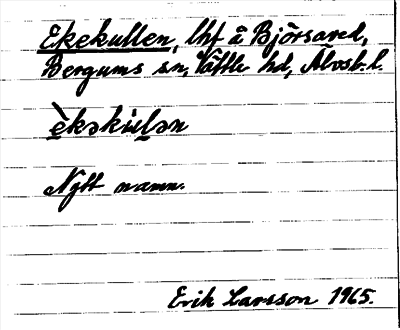 Ekekullen, lht å Björsared,
Bergums sn, Vättle hd, Älvsb. l.
èkəkùl̯ən
Nytt namn.
Erik Larsson 1965.